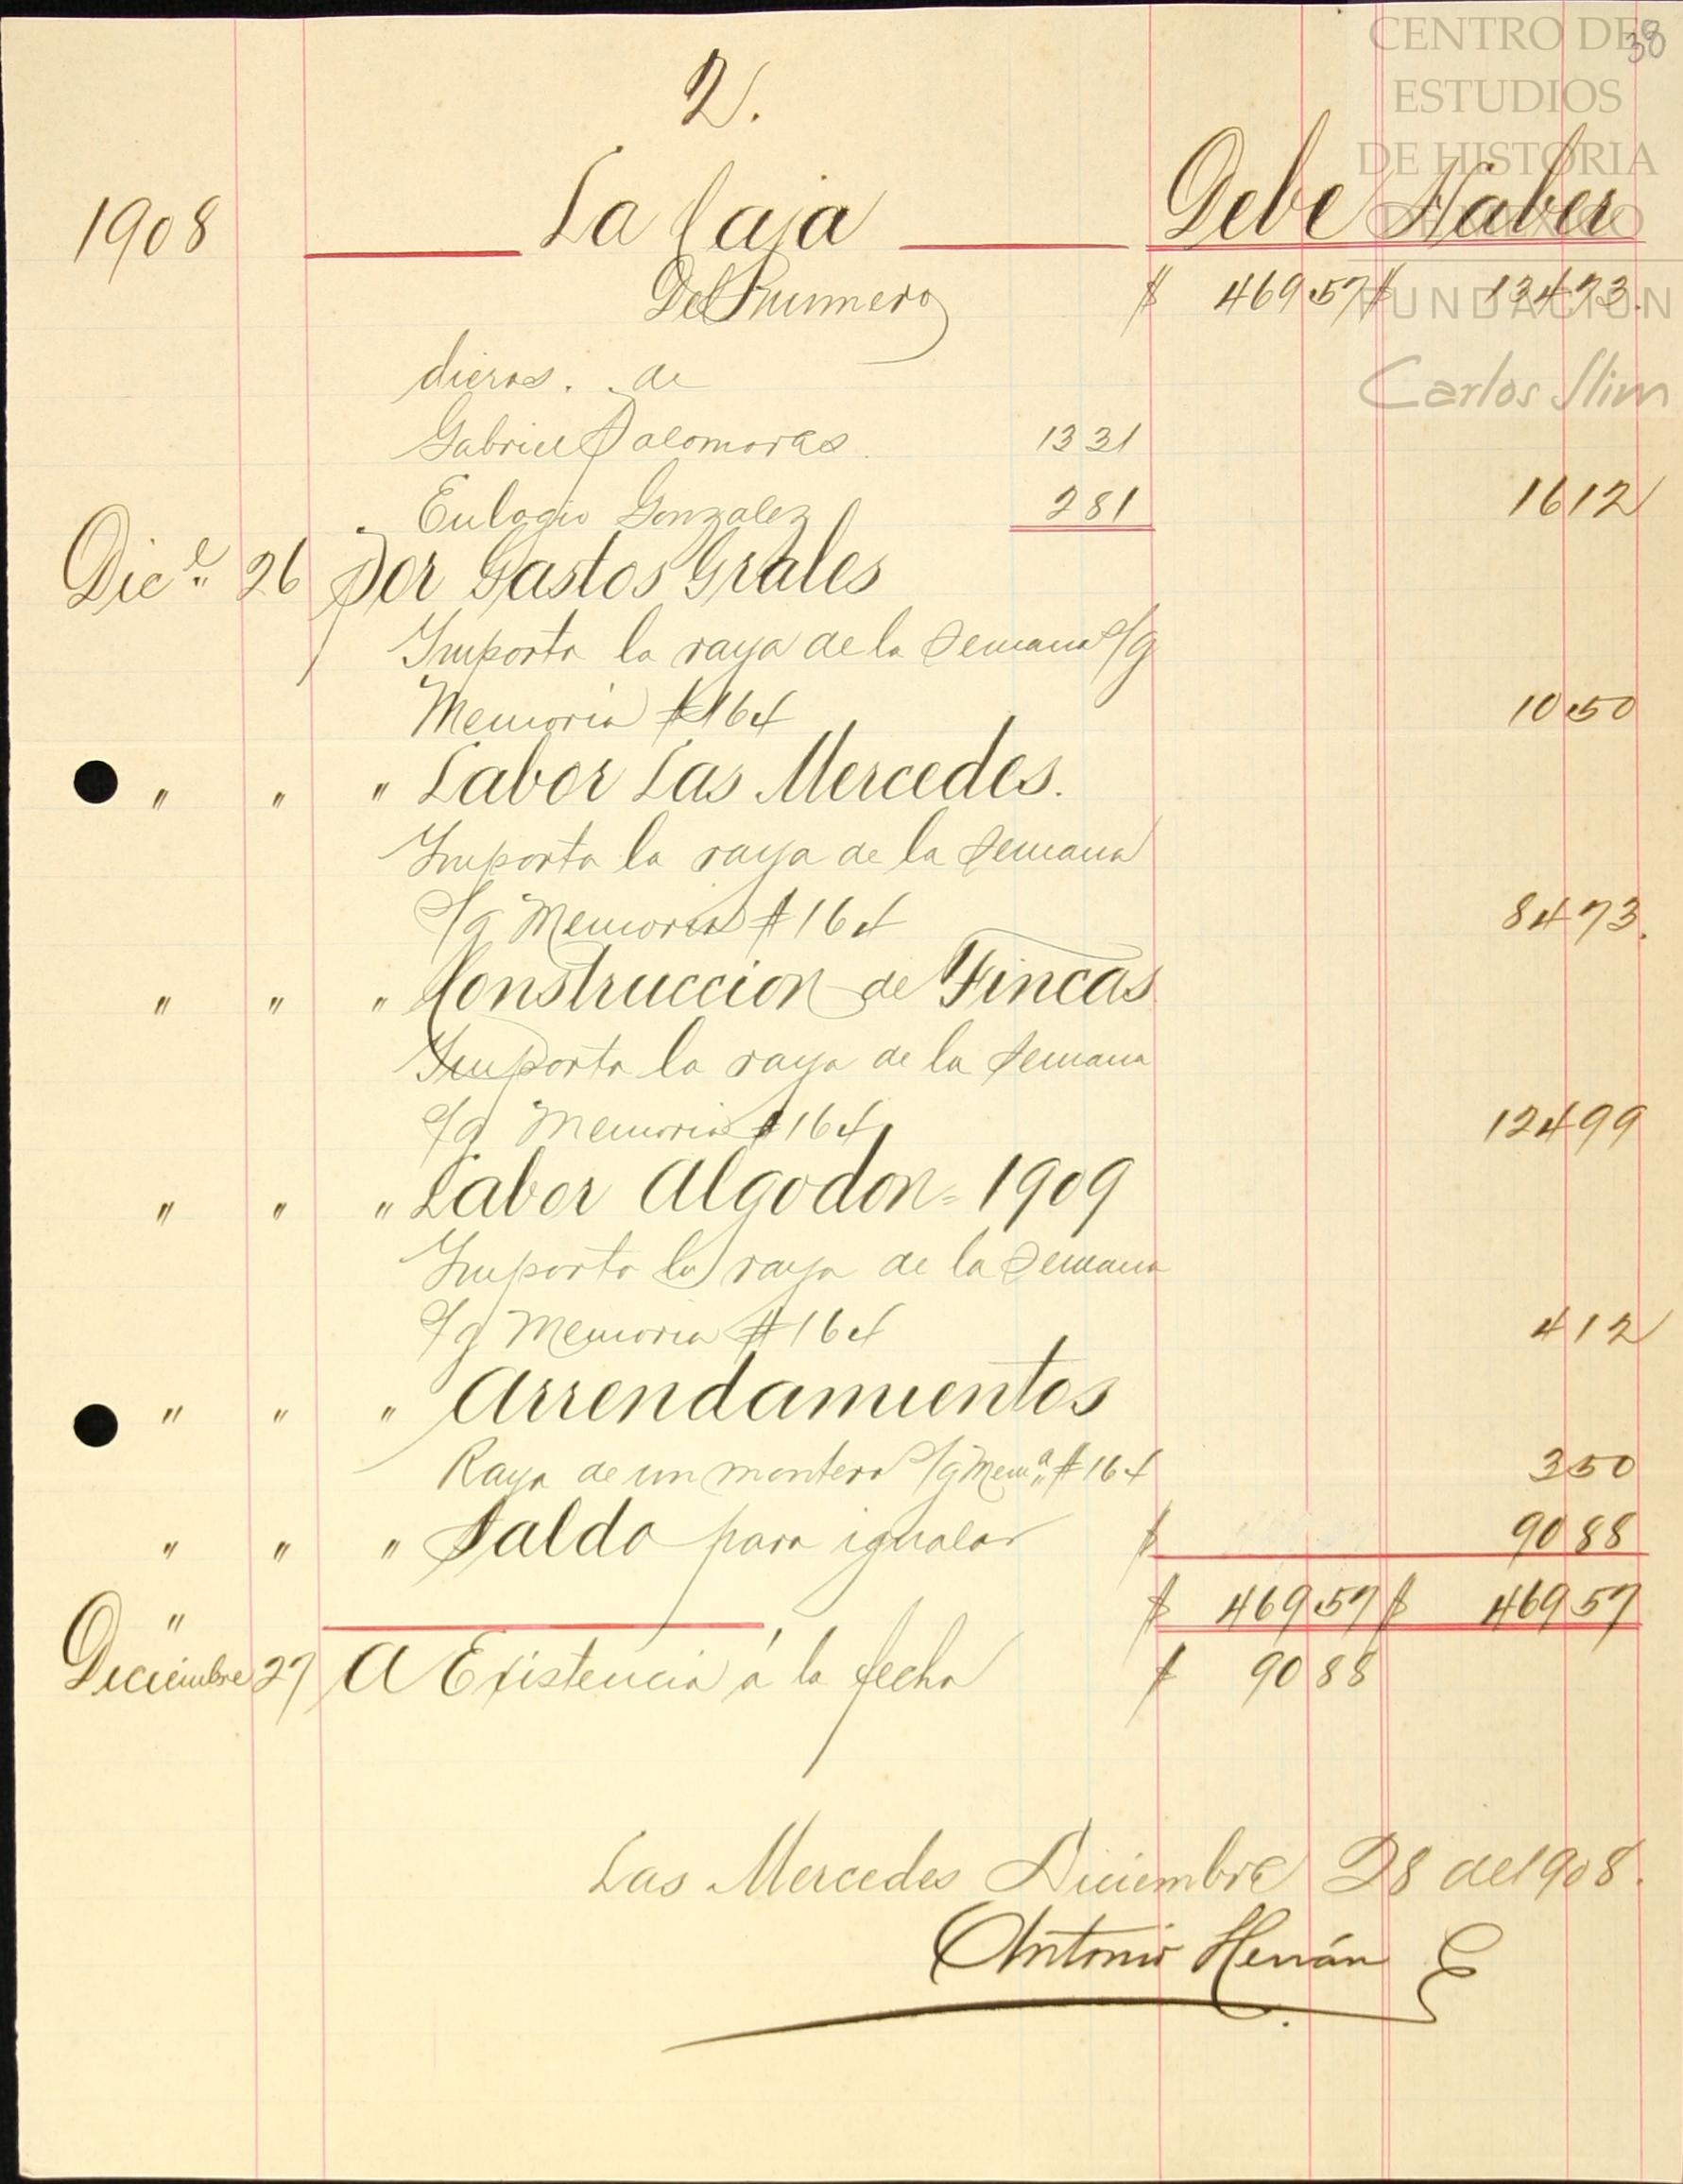 38
CENTRO DE
ESTUDIOS
DE HISTORIA
DE MÉXICO
FUNDACIÓN
Carlos Slim
2.
1908 La Caja Debe Haber
Del Primero $ 469 57 $ 134 73.
dieras. . de
Gabriel Palomares. 13 31
Eulogio Gonzalez 2 81 16 12
Dic.e 26 Por Gastos Grales
Importa la raya de la semana s/g
Memoria # 164 10 50
" " " Labor Las Mercedes.
Importa la raya de la semana
s/g Memoria # 164 84 73.
" " " Construccion de Fincas
Importa la raya de la semana
s/g Memoria # 164 124 99
" " " Labor Algodon = 1909
Importa la raya de la semana
s/g Memoria # 164 4 12
" " " Arrendamientos
Raya de un montero s/g Mem.a # 164 3 50
" " " Saldo para igualar $ 90 88
" $ 469 57 $ 469 57
Diciembre 27 A Existencia á la fecha $ 90 88
Las Mercedes Diciembre 28 de 1908.
Antonio Hernán E